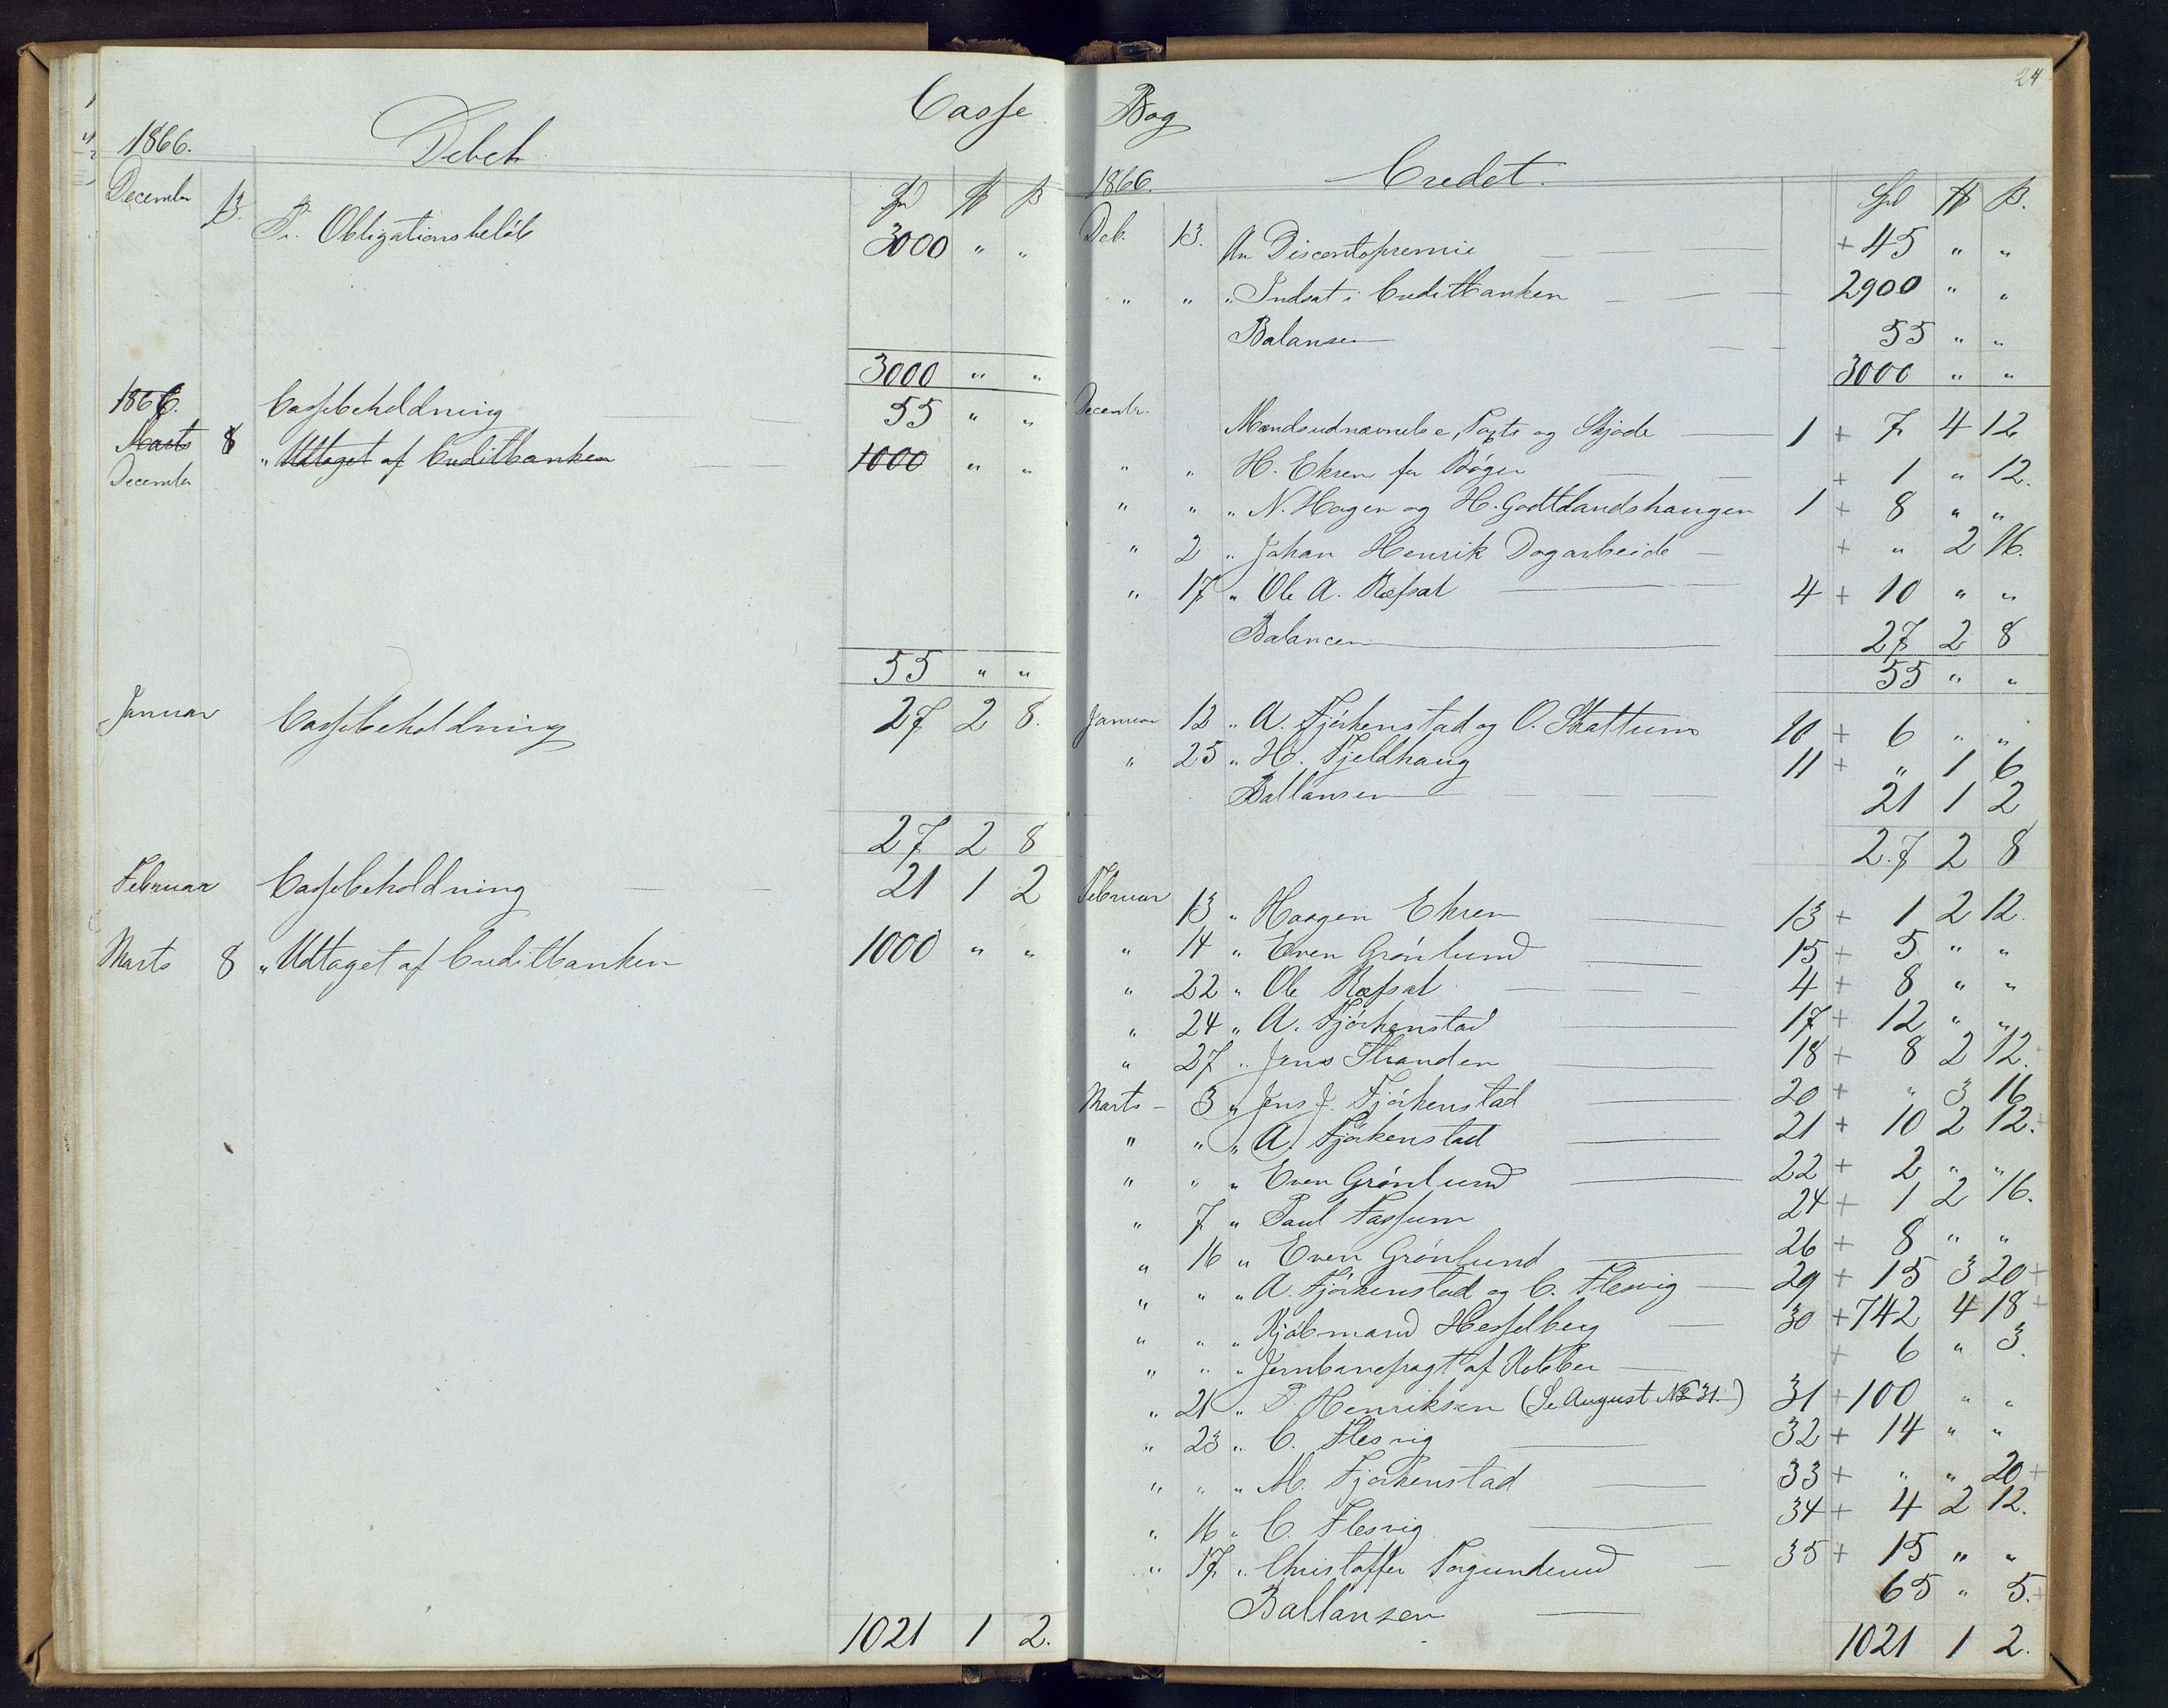 Casse
1866. Debet
December 13. Pr. Obligationsbeløb 3000 " "
3000 " "
1866. Cassebeholdning 55 " "
Marts 8 " Udtaget af Creditbanken 1000 " "
December
55 " "
Januar Cassebeholdning 27 2 8.
27 2 8
Februar Cassebeholdning 21 1 2
Marts 8 " Udtaget af Creditbanken 1000 " "
1021 1 2.
24
Bog
1866. Credet.
13. An Discontopremie + 45 " "
" " " Indsat i Creditbanken 2900 " "
Balansen 55 " "
3000 " "
Decembr. Mændsudnævnelse, og Skjøde 1 + 7 4 12
" " H. Ekren for Bøger + 1 " 12.
" " " N. Hagen og H. Godtlandshaugen 1 + 8 " "
" 2 " Johan Henrik Dagarbeide + " 2 16.
" 17 " Ole A. Ræfsal 4 + 10 " "
Balancen 27 2 8
55 " "
Januar 12 " A. Fjørkenstad og O. Skattum 10 + 6 " "
" 25 " H. Fjeldhaug 11 + " 1 6
Ballansen 21 1 2
27 2 8
Februar 13 " Haagen Ekren 13 + 1 2 12.
" 14 " Even Grønlund 15 + 5 " "
" 22 " Ole Ræfsal 4 + 8 " "
" 24 " A. Fjørkenstad 17 + 12 " "
" 27 " Jens Stranden 18 + 8 2 12.
Marts - 3 " Jens J. Fjørkenstad 20 + " 3 16
" " " A. Fjørkenstad 21 + 10 2 12.
" " " Even Grønlund 22 + 2 " "
" 7 " Paul Fossum 24 + 1 2 16.
" 16 " Even Grønlund 26 + 8 " "
" " " A. Fjørkenstad og C. Flesvig 29 + 15 3 20 +
" " " Kjøbmand Hesselberg 30 + 742 4 18 +
" " " Jernbanefragt af + 6 " 3.
" 21 " P. Henriksen (Se August No 31.) 31 + 100 " "
" 23 " C. Flesvig 32 + 14 " "
" " " M. Fjørkenstad 33 + " " 20 +
" 16 " C. Flesvig 34 + 4 2 12.
" 17 " Christoffer 35 + 15 " "
Ballansen 65 " 5. +
1021 1 2.